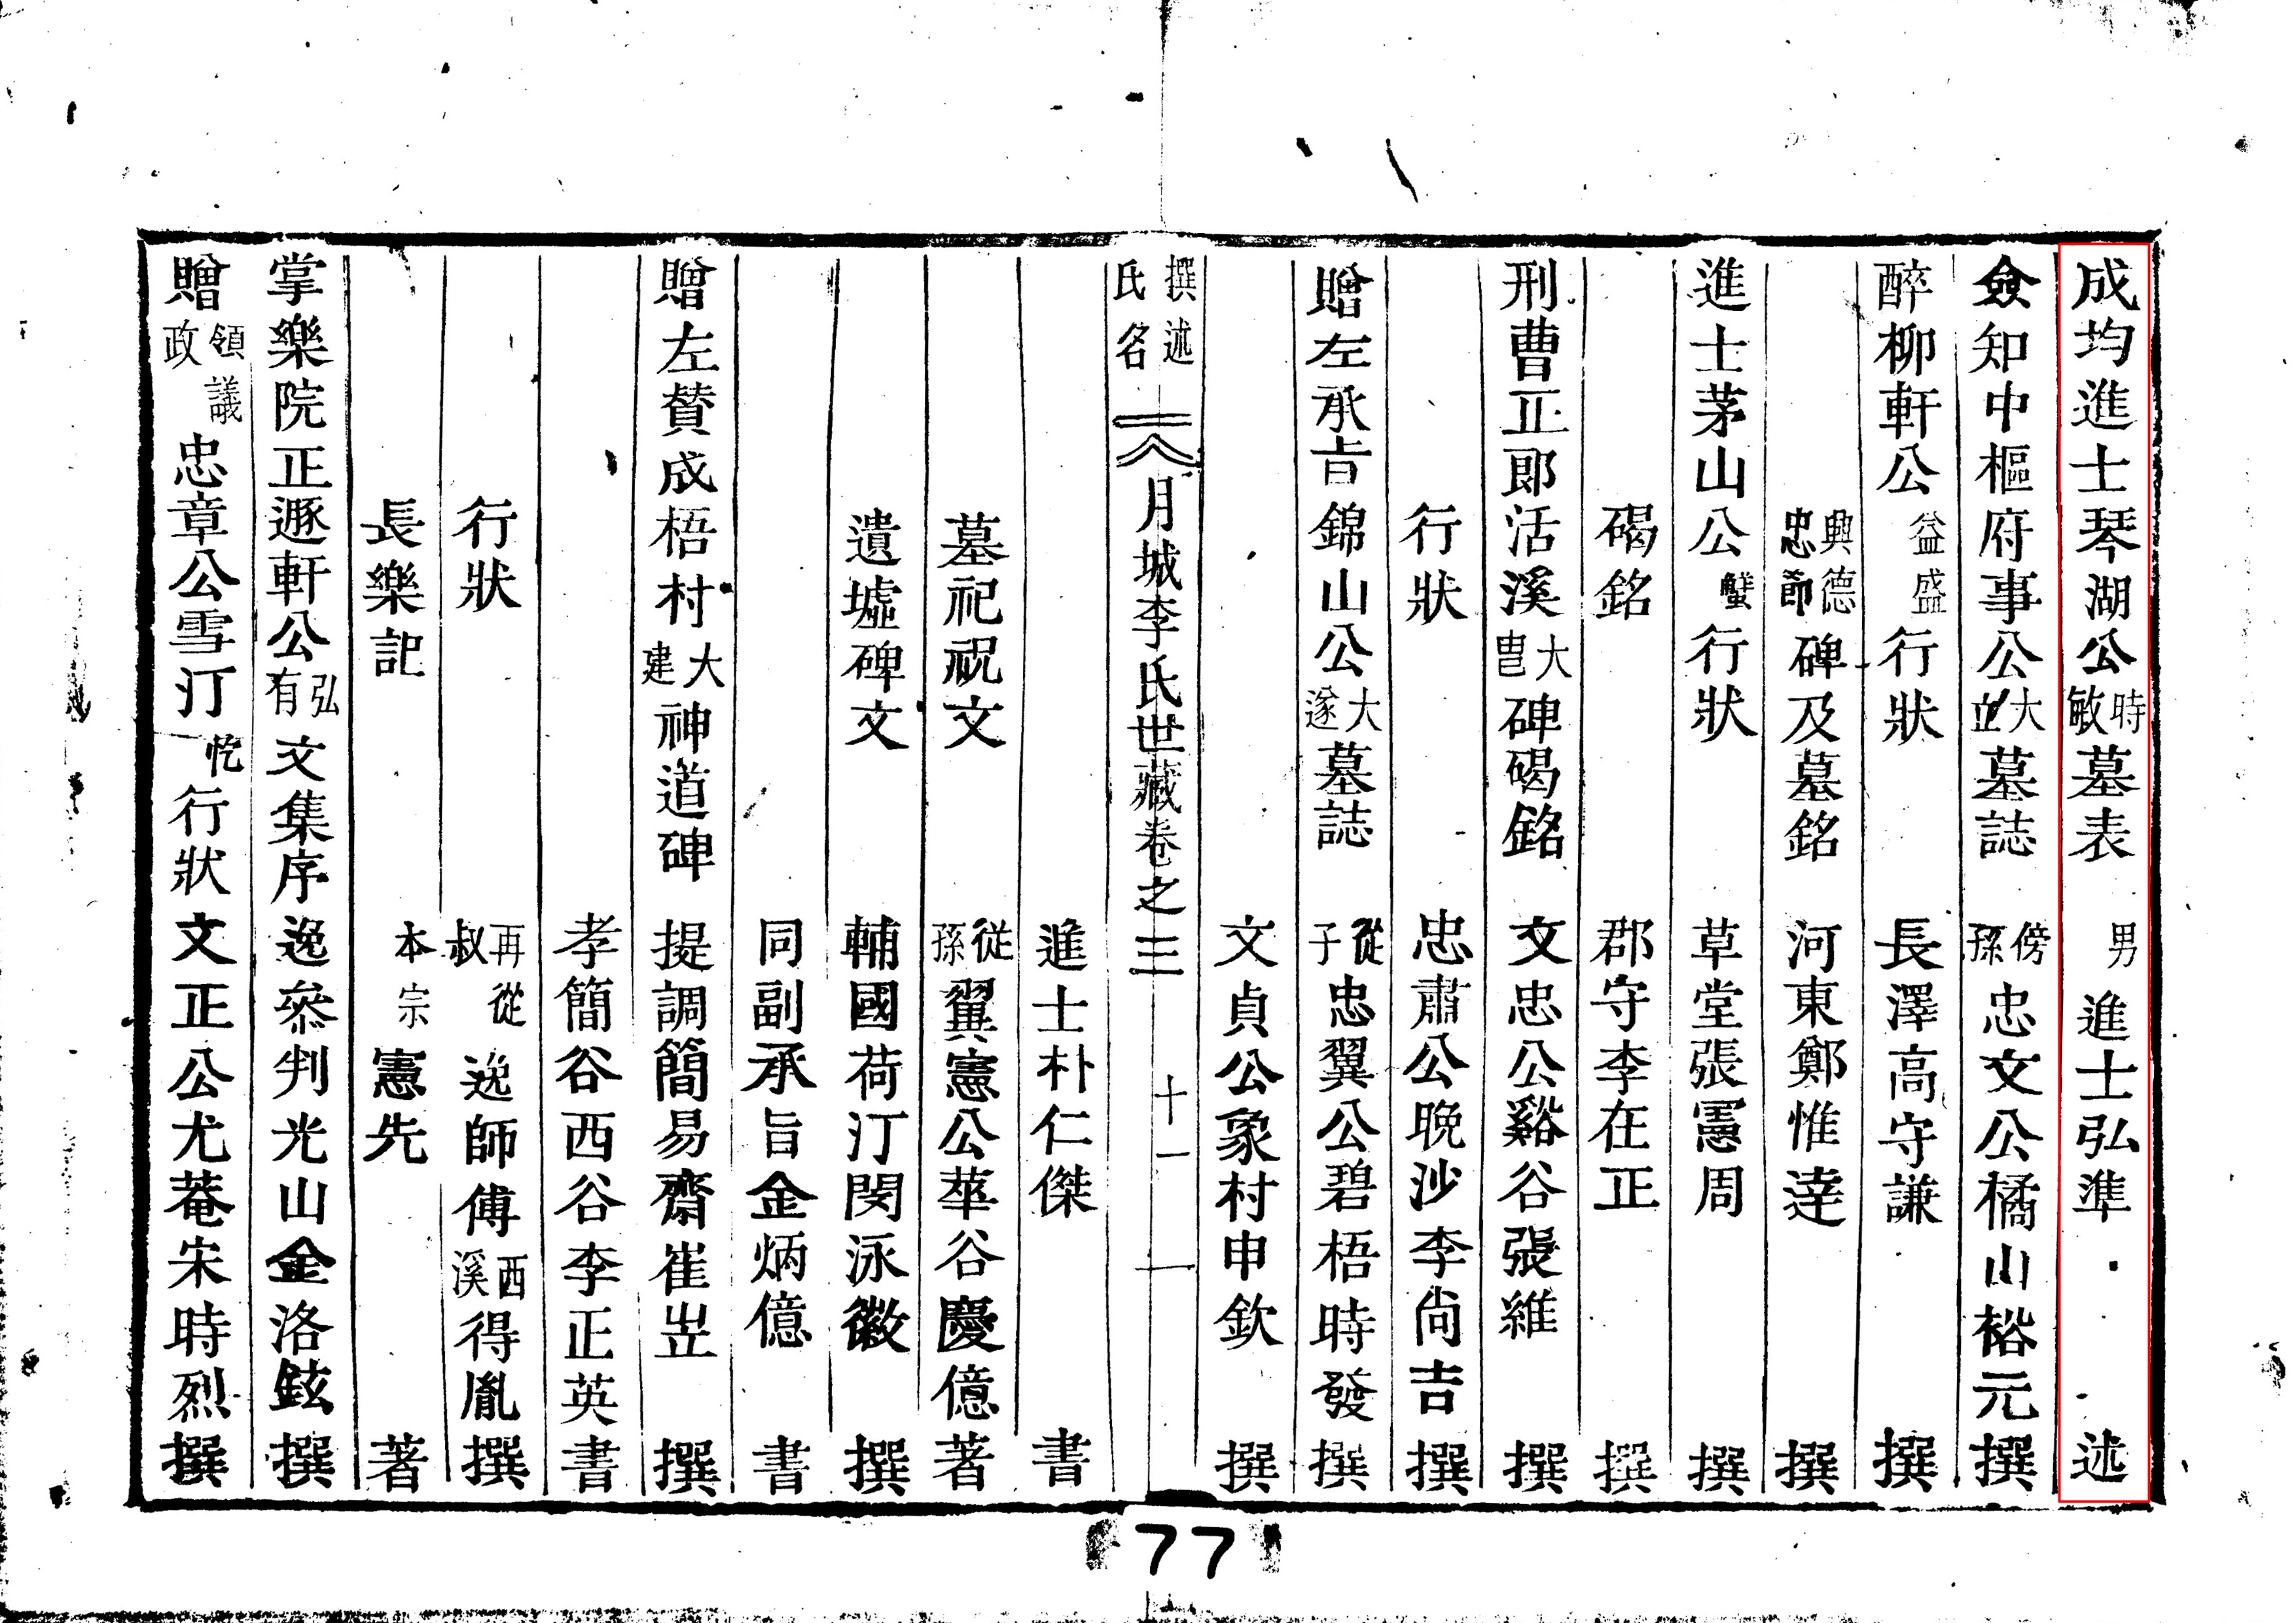 成均進士琴湖公時敏墓表 男進士弘準 述
僉知中樞府事公大䇐墓誌 傍孫忠文公橘山裕元撰
醉柳軒公益盛行狀 長澤高守謙 撰
興德忠節碑及墓銘 河東鄭惟達 撰
進士茅山公蟹行狀 草堂張憲周 撰
碣銘 郡守李在正 撰
刑曹正郎活溪大㽕碑碣銘 文忠公谿谷張維 撰
行狀 忠肅公晩沙李尙吉撰
贈左承旨錦山公大邃墓誌 從子忠翼公碧梧時發撰
文貞公象村申欽 撰
撰述氏名 月城李氏世藏卷之三 十一
進士朴仁傑 書
墓祀祝文 從孫翼憲公華谷慶億著
遺墟碑文 輔國荷汀閔泳徽 撰
同副承旨金炳億 書
贈左贊成梧村大建神道碑 提調簡易齋崔岦 撰
孝簡谷西谷李正英書
行狀 再從叔逸師傅西溪得胤撰
長樂記 本宗憲先 著
掌樂院正遯軒公弘有文集序 逸叅判光山金洛鉉撰
贈領議政忠章公雪汀忔行狀 文正公尤菴宋時烈撰
77